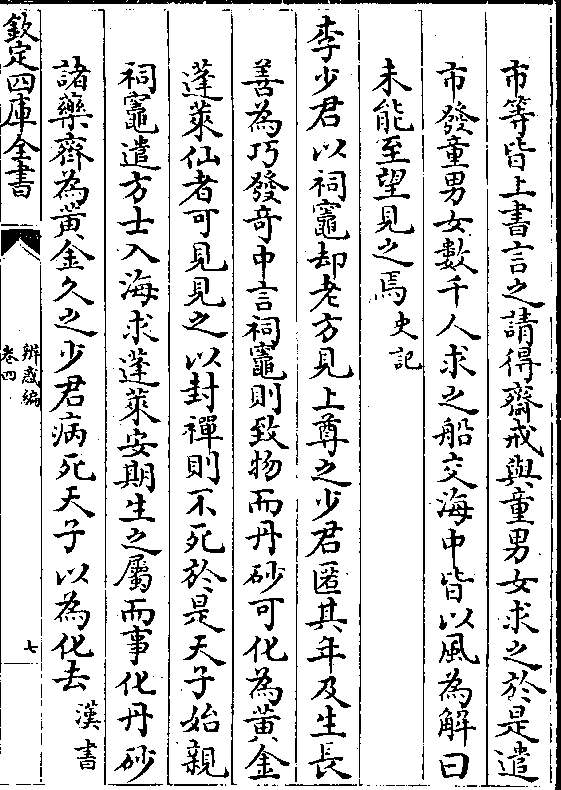 市等皆上書言之請得齋戒與童男女求之於是遣
市發童男女數千人求之船交海中皆以風為解曰
未能至望見之焉史記
李少君以祠竈却老方見上尊之少君匿其年及生長
善為巧發奇中言祠竈則致物而丹砂可化為黃金
蓬萊仙者可見見之以封禪則不死於是天子始親
祠竈遣方士入海求蓬萊安期生之屬而事化丹砂
諸藥齊為黃金久之少君病死天子以為化去漢書
欽定四庫全書
辨惑編
卷四
七